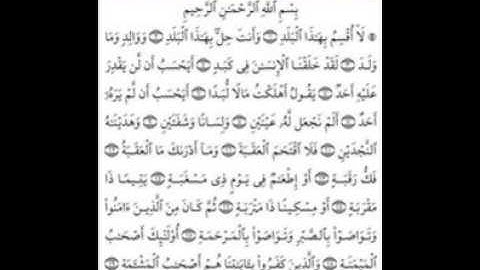 بِسْمِ اللَّهِ الرَّحْمَٰنِ الرَّحِيمِ
لَا أُقْسِمُ بِهَٰذَا الْبَلَدِ ۝ وَأَنتَ حِلٌّ بِهَٰذَا الْبَلَدِ ۝ وَوَالِدٍ وَمَا
وَلَدَ ۝ لَقَدْ خَلَقْنَا الْإِنسَٰنَ فِى كَبَدٍ ۝ أَيَحْسَبُ أَن لَّن يَقْدِرَ
عَلَيْهِ أَحَدٌ ۝ يَقُولُ أَهْلَكْتُ مَالًا لُّبَدًا ۝ أَيَحْسَبُ أَن لَّمْ يَرَهُۥ
أَحَدٌ ۝ أَلَمْ نَجْعَل لَّهُۥ عَيْنَيْنِ ۝ وَلِسَانًا وَشَفَتَيْنِ ۝ وَهَدَيْنَٰهُ
النَّجْدَيْنِ ۝ فَلَا اقْتَحَمَ الْعَقَبَةَ ۝ وَمَا أَدْرَىٰكَ مَا الْعَقَبَةُ ۝
فَكُّ رَقَبَةٍ ۝ أَوْ إِطْعَٰمٌ فِى يَوْمٍ ذِى مَسْغَبَةٍ ۝ يَتِيمًا ذَا
مَقْرَبَةٍ ۝ أَوْ مِسْكِينًا ذَا مَتْرَبَةٍ ۝ ثُمَّ كَانَ مِنَ الَّذِينَ ءَامَنُوا
وَتَوَاصَوْا بِالصَّبْرِ وَتَوَاصَوْا بِالْمَرْحَمَةِ ۝ أُولَٰئِكَ أَصْحَٰبُ
الْمَيْمَنَةِ ۝ وَالَّذِينَ كَفَرُوا بِـَٔايَٰتِنَا هُمْ أَصْحَٰبُ الْمَشْـَٔمَةِ